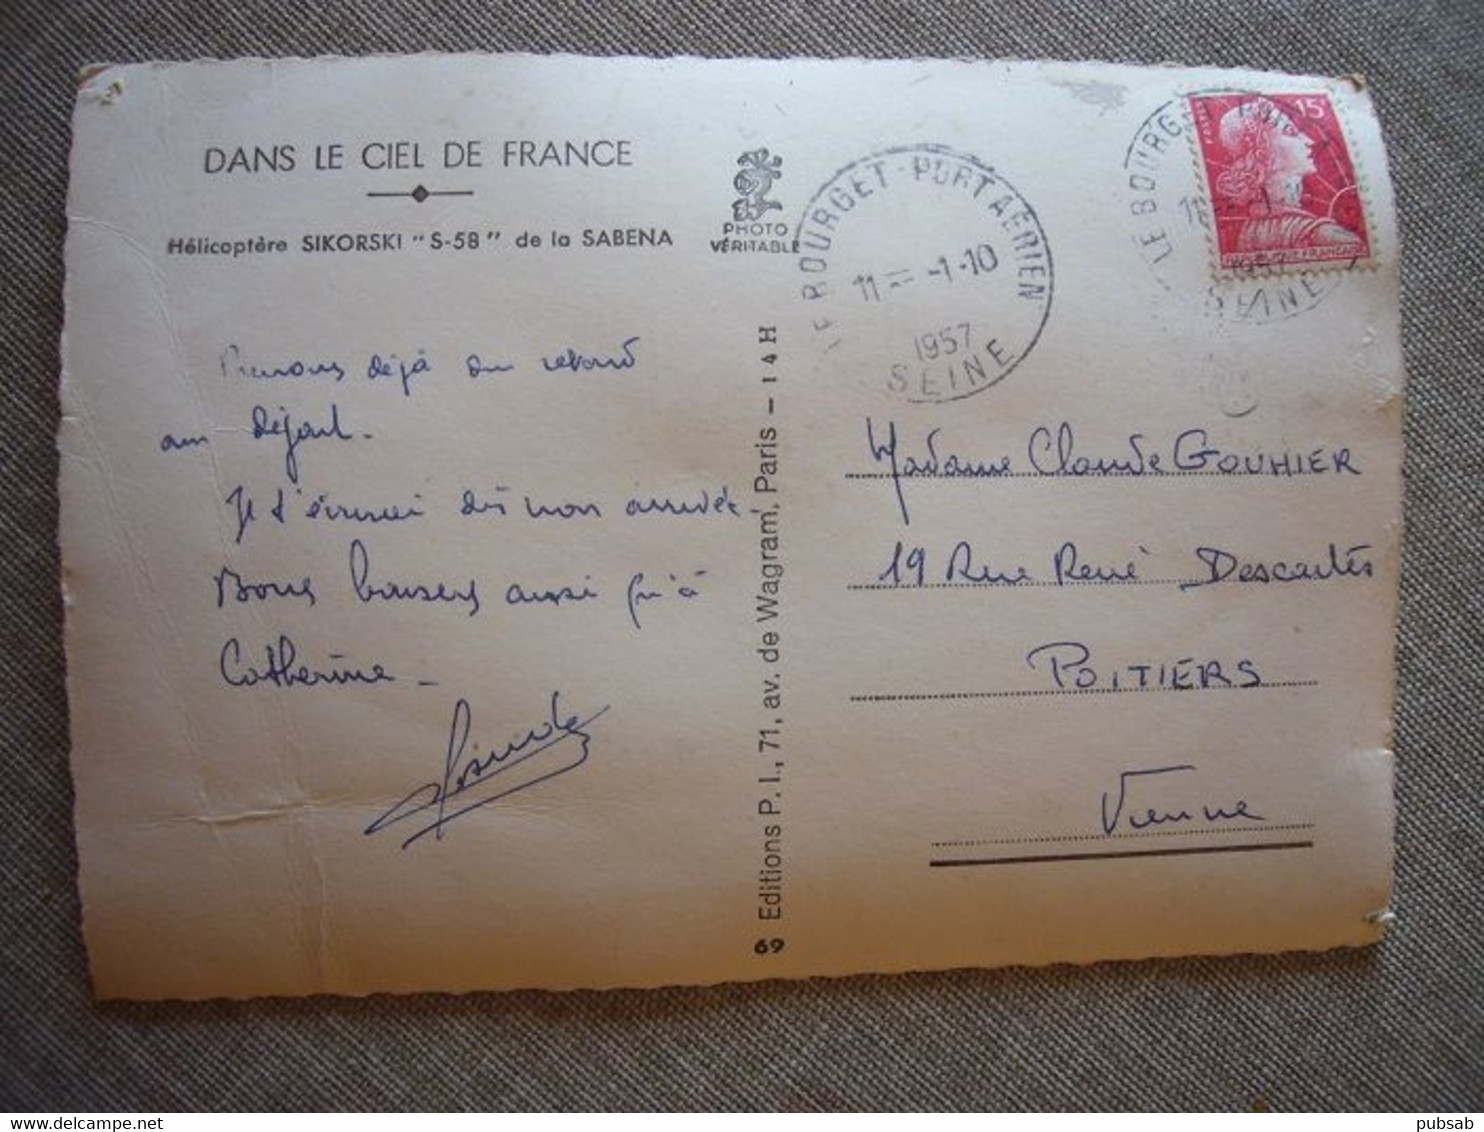 DANS LE CIEL DE FRANCE
Hélicoptère SIKORSKI "S-58" de la SABENA
PHOTO
VÉRITABLE
LE BOURGET-PORT AÉRIEN
11 - -1-10
1957
SEINE
LE BOURGET
11
1957
SEINE
15F
POSTES
REPUBLIQUE FRANÇAISE
Prenons déjà du retard
au départ.
Je t'écrirai dès mon arrivée.
Bons baisers ainsi qu'à
Catherine
69 Editions P. I., 71, av. de Wagram, Paris - 14 H
Madame Claude GOUHIER
19 Rue René Descartes
POITIERS
Vienne
pubsab